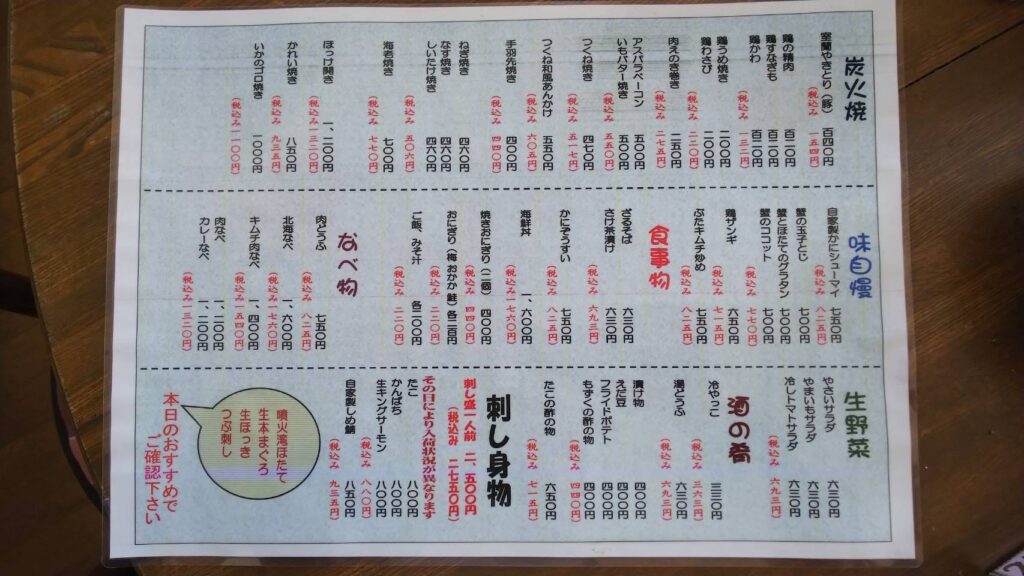 炭火焼
室蘭やきとり（豚） 百四〇円
（税込み 一五四円）
鶏の精肉 百二〇円
鶏すなぎも 百二〇円
鶏かわ 百二〇円
（税込み 一三二円）
鶏うめ焼き 二〇〇円
鶏わさび 二〇〇円
（税込み 二二〇円）
肉えのき巻き 二五〇円
（税込み 二七五円）
アスパラベーコン 五〇〇円
いもバター焼き 五〇〇円
（税込み 五五〇円）
つくね焼き 四七〇円
（税込み 五一七円）
つくね和風あんかけ 五五〇円
（税込み 六〇五円）
手羽先焼き 四〇〇円
（税込み 四四〇円）
ねぎ焼き 四六〇円
なす焼き 四六〇円
しいたけ焼き 四六〇円
（税込み 五〇六円）
海老焼き 七〇〇円
（税込み 七七〇円）
ほっけ開き 一、二〇〇円
（税込み 一三二〇円）
かれい焼き 八五〇円
（税込み 九三五円）
いかのゴロ焼き 一〇〇〇円
（税込み 一一〇〇円）
味自慢
自家製かにシューマイ 七五〇円
（税込み 八二五円）
蟹の玉子とじ 七〇〇円
蟹とほたてのグラタン 七〇〇円
蟹のココット 七〇〇円
（税込み 七七〇円）
鶏ザンギ 六五〇円
（税込み 七一五円）
ぶたキムチ炒め 七五〇円
（税込み 八二五円）
食事物
ざるそば 六三〇円
さけ茶漬け 六三〇円
（税込み 六九三円）
かにぞうすい 七五〇円
（税込み 八二五円）
海鮮丼 一、六〇〇円
（税込み 一七六〇円）
焼きおにぎり（二個） 四〇〇円
（税込み 四四〇円）
おにぎり（梅 おかか 鮭）各二〇〇円
（税込み 二二〇円）
ご飯、みそ汁 各二〇〇円
（税込み 二二〇円）
なべ物
肉どうふ 七五〇円
（税込み 八二五円）
北海なべ 一、六〇〇円
（税込み 一七六〇円）
キムチ肉なべ 一、四〇〇円
（税込み 一五四〇円）
肉なべ 一、二〇〇円
カレーなべ 一、二〇〇円
（税込み 一三二〇円）
生野菜
やさいサラダ 六三〇円
やまいもサラダ 六三〇円
冷しトマトサラダ 六三〇円
（税込み 六九三円）
酒の肴
冷やっこ 三三〇円
（税込み 三六三円）
湯どうふ 六三〇円
（税込み 六九三円）
漬け物 四〇〇円
えだ豆 四〇〇円
フライドポテト 四〇〇円
もずくの酢の物 四〇〇円
（税込み 四四〇円）
たこの酢の物 六五〇円
（税込み 七一五円）
刺し身物
刺し盛一人前 二、五〇〇円
（税込み 二七五〇円）
その日により入荷状況が異なります
たこ 八〇〇円
かんぱち 八〇〇円
生キングサーモン 八〇〇円
（税込み 八八〇円）
自家製しめ鯖 八五〇円
（税込み 九三五円）
噴火湾ほたて
生本まぐろ
生ほっき
つぶ刺し
本日のおすすめで
ご確認下さい